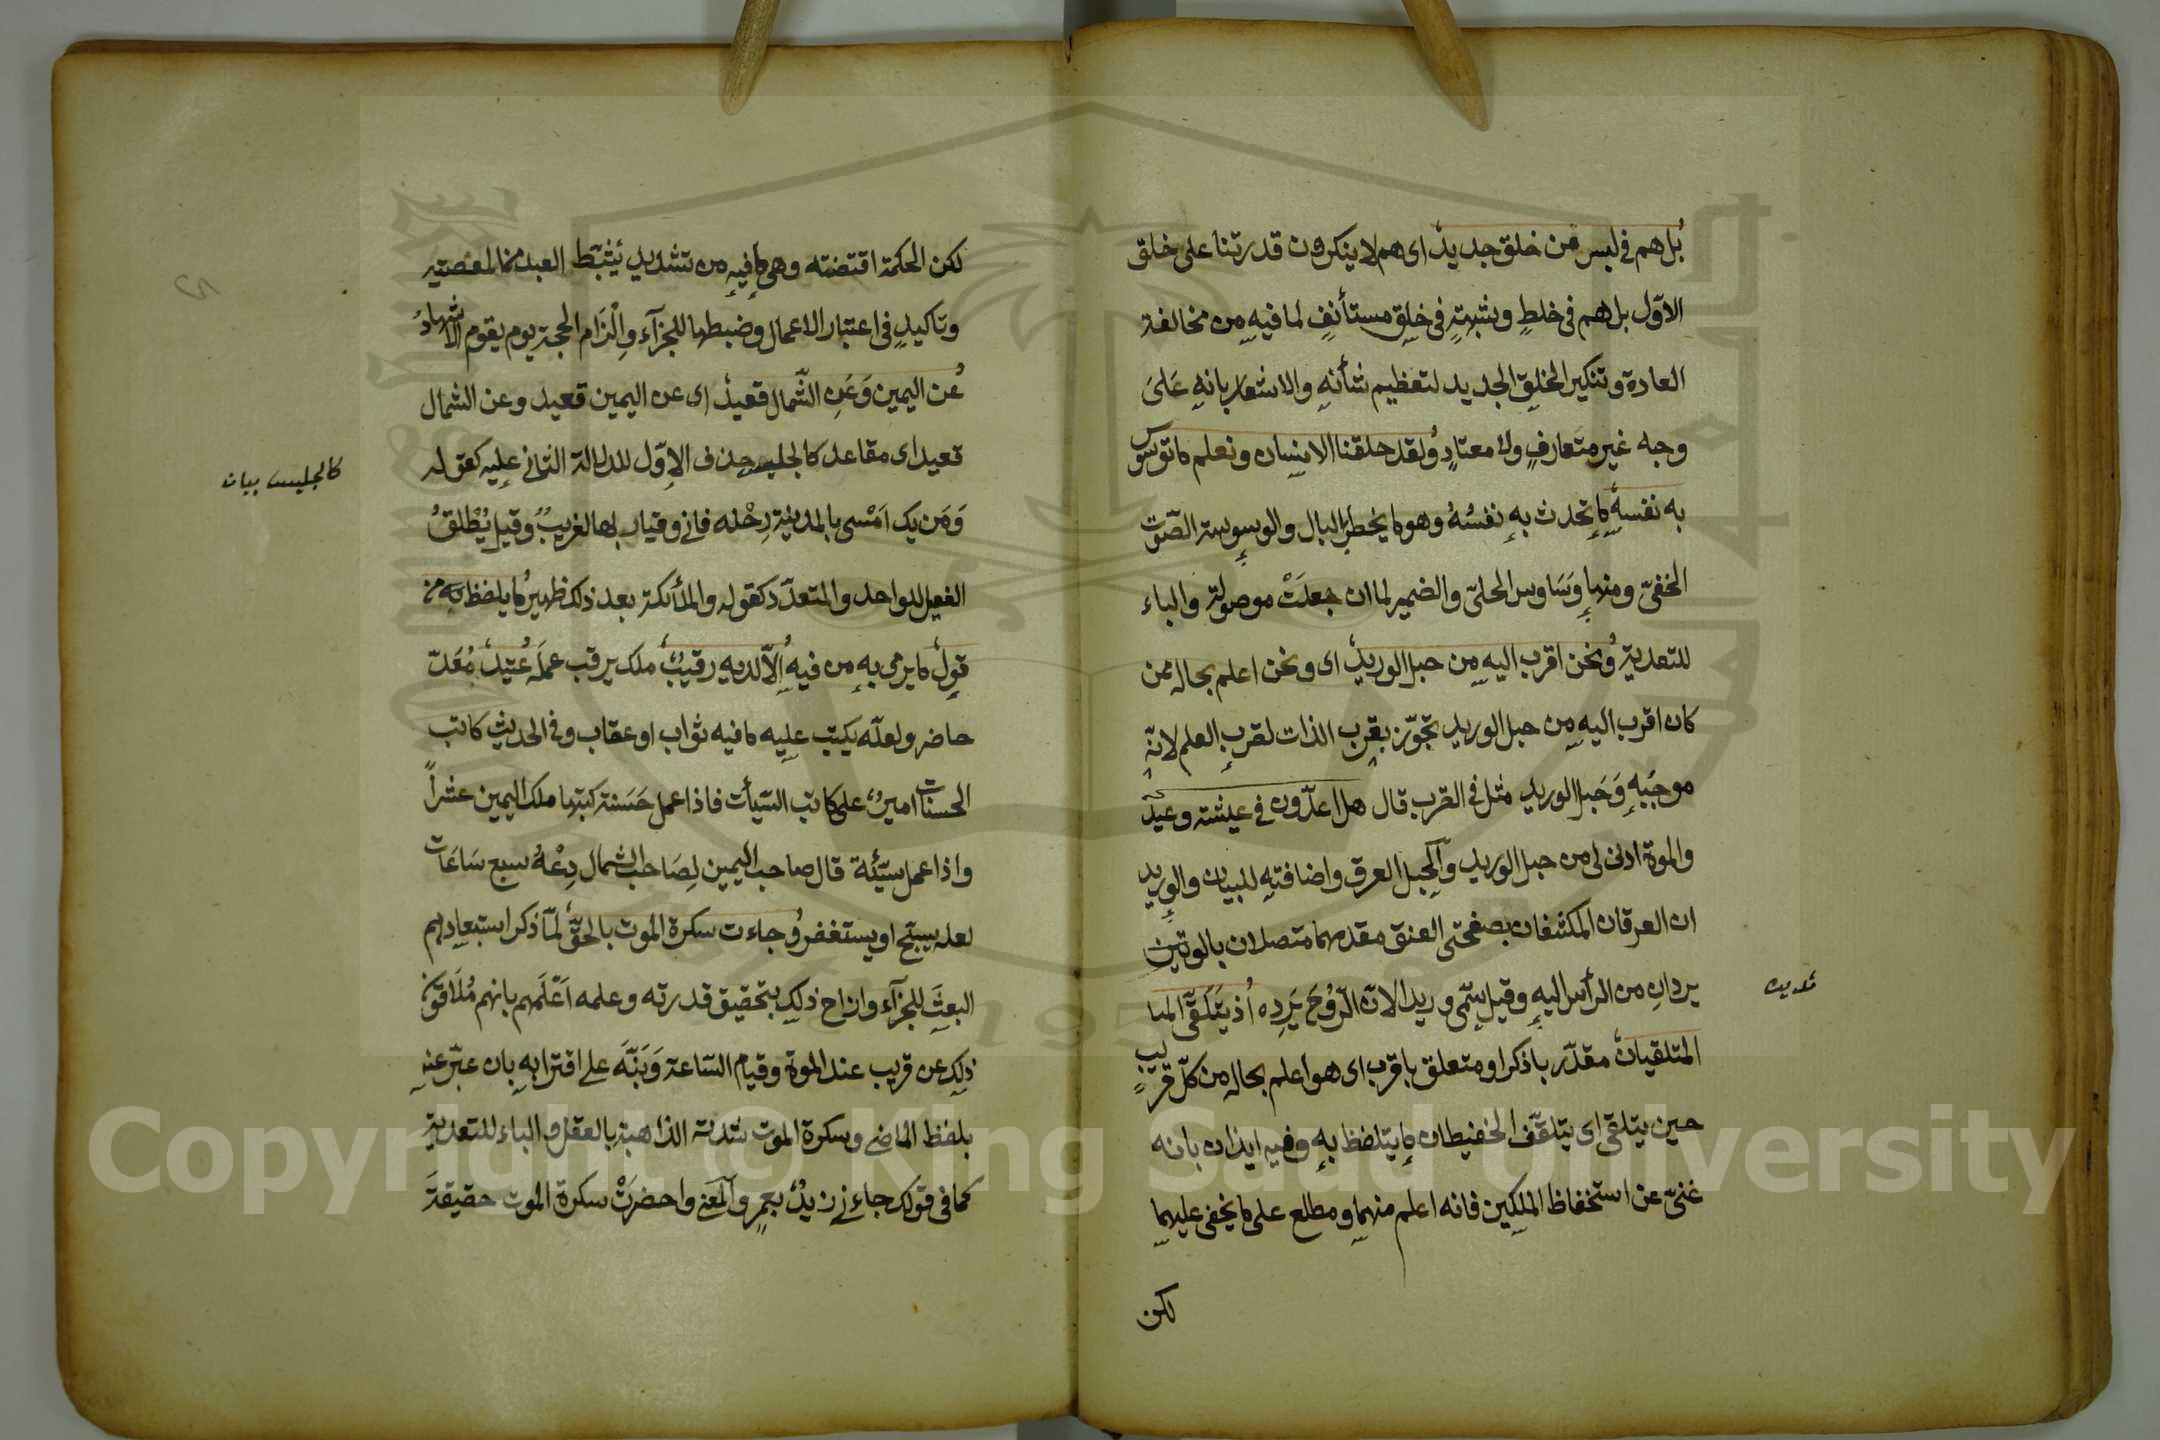 بل هم فى لبس من خلق جديد اى هم لا ينكرون قدرتنا على خلق
الاوّل بل هم فى خلطٍ وشبهةٍ فى خلقٍ مستأنفٍ لما فيهِ من مخالفة
العادة وتنكير الخلق الجديد لتعظيم شأنهِ والاشعار بانهِ عَلىَ
وجه غير متعارفٍ ولا معتادٍ ولقد خلقنا الانسان ونعلم ما توسوس
به نفسه ما تحدث بهِ نفسُهُ وهو ما يخطر بالبال والوسوسة الصّوت
الخفىّ ومنها وَسَاوس الحلىّ والضمير لما ان جعلَتْ موصولة والباء
للتعدية ونحن اقرب اليهِ من حبل الوريد اى ونحن اعلم بحاله ممن
كان اقرب اليهِ من حبل الوريد تجوّز بقرب الذات لقرب العلم لانهّ
موجبهِ وَحَبل الوريد مثل فى القرب قال هل اعذون فى عيشة وعيد
والموة ادنى لى من حبل الوريد والحبل العرق واضافتهِ للبيان والوريد
ان العرقان المكتنفان بصفحتى العنق مقدمهما متصلان بالوتين
يردان من الرأس اليهِ وقيل سمّى وريدا لانّ الرّوُحَ يَرِده اذ يَتَلَقَّى المتـا
تلديد
المتلقيان مقدّر باذكر او متعلق باقرب اى هو اعلم بحاله من كلّ قريبٍ
حين يتلقى اى يتلقّف الحفيطان ما يتلفظ بهِ وفيه ايذان بانه
غنىّ عن استحفاظ الملكين فانه اعلم منهما ومطلع على ما يخفى عليهما
لكن
لكن الحكمة اقتضته وهى ما فيهِ من تشديد يُثبّط العبد عن المعصية
وتاكيدٍ فى اعتبار الاعمال وضبطها للجزآء والْزَام الحجة يوم يقوم الاشهادُ
عن اليمين وَعَنِ الشّمال قعيد اى عن اليمين قعيد وعن الشمال
قعيد اى مقاعد كالجليس حذف الاوّل لدلالة الثانى عليه كقوله
كالجليس بيان
وَمَن يك اَمْسى بالمدينة رحْله فانى وقيار بها لغريبٌ وقيل يُطْلقُ
الفعيل للواحد والمتعدّد كقوله والملائكة بعد ذلك ظهير ما يلفظ به من
قولٍ ما يرمى بهِ من فيه الاّ لديه رقيبٌ ملك يرقب عمَله عتيد مُعَدّ
حاضر ولعلّه يكتب عليه ما فيه ثواب او عقاب وفى الحديث كاتب
الحسنات اميرٌ على كاتب السّيأت فاذا عمل حَسَنة كتبها ملك اليمين عشراً
واذا عمل سيّئة قال صاحب اليمين لِصَاحب الشمال دِعْهُ سبع سَاعَات
لعله يسبّح او يستغفر وجاءت سكرة الموت بالحقّ لمّا ذكر استبعادهم
البعث للجزآء وازاح ذلك بتحقيق قدرته وعلمه اَعْلَمهم بانهم مُلَاقون
ذلك عن قريب عند الموة وقيام السّاعة وَنَبَّه على اقترابهِ بان عبّر عنهِ
بلفظ الماضى وسكرة الموت شدته الذاهبة بالعقل والباء للتعدية
كما فى قولك جاءنى زيدٌ بعمرٍ والمَعنى واحضرَتْ سكرة الموت حقيقةَ
Copyright © King Saud University
1957